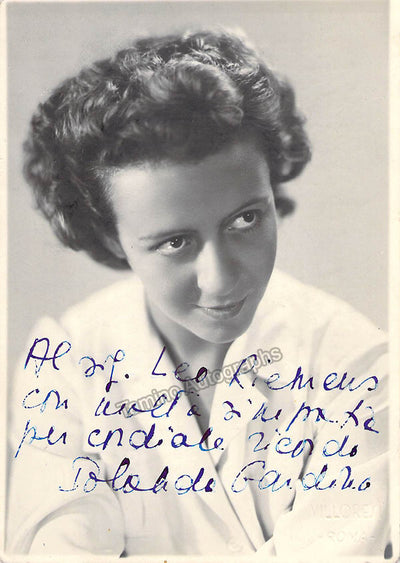 Al sig. Leo Riemens
con molta simpatia
per cordiale ricordo
Iolanda Gardino
Tamino Autographs
VILLORESI
ROMA